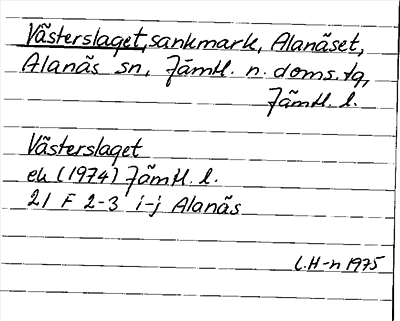 Västerslaget, sankmark, Alanäset,
Alanäs sn, Jämtl. n. doms. tg,
Jämtl. l.
Västerslaget
ek (1974) Jämtl. l.
21 F 2-3 i-j Alanäs
L.H-n 1975